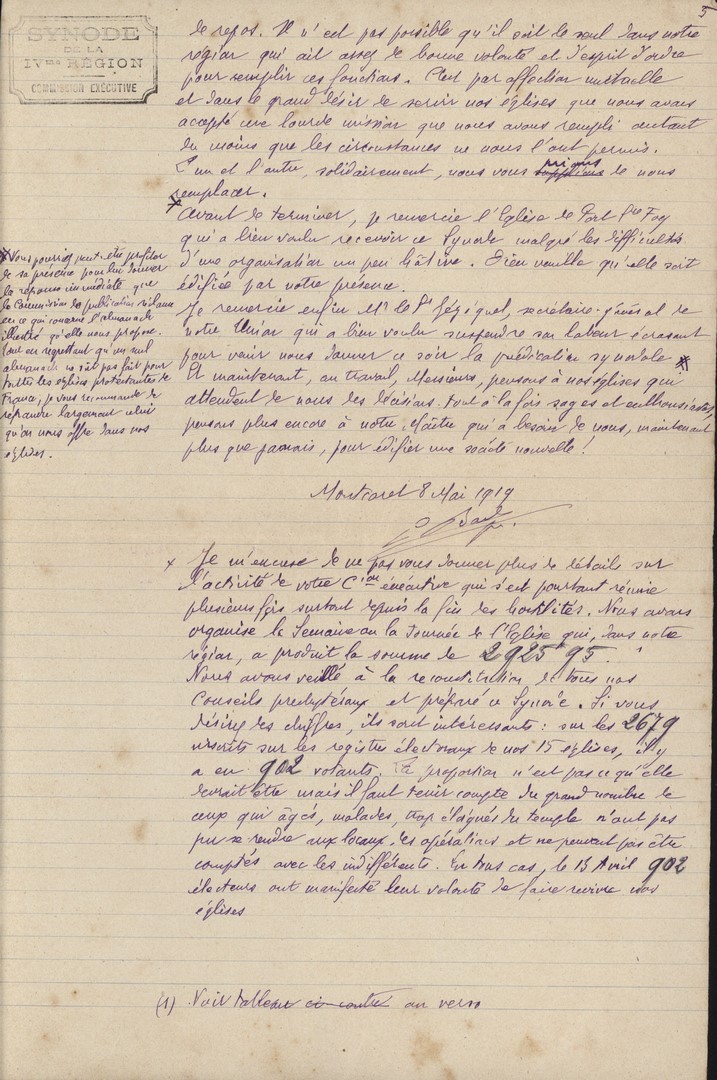 5
SYNODE
DE LA
IVme RÉGION
COMMISSION EXÉCUTIVE
de repos. Il n'est pas possible qu'il soit le seul dans notre
région qui ait assez de bonne volonté et d'esprit d'ordre
pour remplir ces fonctions. C'est par affection mutuelle
et dans le grand désir de servir nos églises que nous avons
accepté une lourde mission que nous avons rempli autant
du moins que les circonstances ne nous l'ont permis.
L'un et l'autre, solidairement, nous vous prions de nous
remplacer.
* Avant de terminer, je remercie l'Eglise de Port Ste Foy
qui a bien voulu recevoir ce Synode malgré les difficultés
d'une organisation un peu hâtive. Dieu veuille qu'elle soit
édifiée par votre présence.
Je remercie enfin Mr le Pr Jézéquel, secrétaire-général de
notre Union qui a bien voulu suspendre son labeur écrasant
pour venir nous donner ce soir la prédication synodale *
Et maintenant, au travail, Messieurs, pensons à nos églises qui
attendent de nous des décisions tout à la fois sages et enthousiastes,
pensons plus encore à notre Maître qui a besoin de nous, maintenant
plus que jamais, pour édifier une société nouvelle!
* Vous pourriez peut-être profiter
de sa présence pour lui donner
la réponse immédiate que
la Commission de publication réclame
en ce qui concerne l'almanach
illustré qu'elle nous propose.
Tout en regrettant qu'un seul
almanach ne soit pas fait pour
toutes les églises protestantes de
France, je vous recommande de
répandre largement celui
qu'on nous offre dans nos
églises.
Montcaret 8 Mai 1919
x Je m'excuse de ne pas vous donner plus de détails sur
l'activité de votre Cion exécutive qui s'est pourtant réunie
plusieurs fois surtout depuis la fin des hostilités. Nous avons
organisé la Semaine ou la Journée de l'Eglise qui, dans notre
région, a produit la somme de 2925 95.
Nous avons veillé à la reconstitution de tous nos
Conseils presbytéraux et préparé ce Synode. Si vous
désirez des chiffres, ils sont intéressants: sur les 2679
inscrits sur les registres électoraux de nos 15 églises, il y
a eu 902 votants. La proportion n'est pas ce qu'elle
devrait être mais il faut tenir compte du grand nombre de
ceux qui âgés, malades, trop éloignés du temple n'ont pas
pu se rendre aux locaux des opérations et ne peuvent pas être
comptés avec les indifférents. En tous cas, le 13 Avril 902
électeurs ont manifesté leur volonté de faire revivre nos
églises
(1) Voir tableau ci-contre au verso